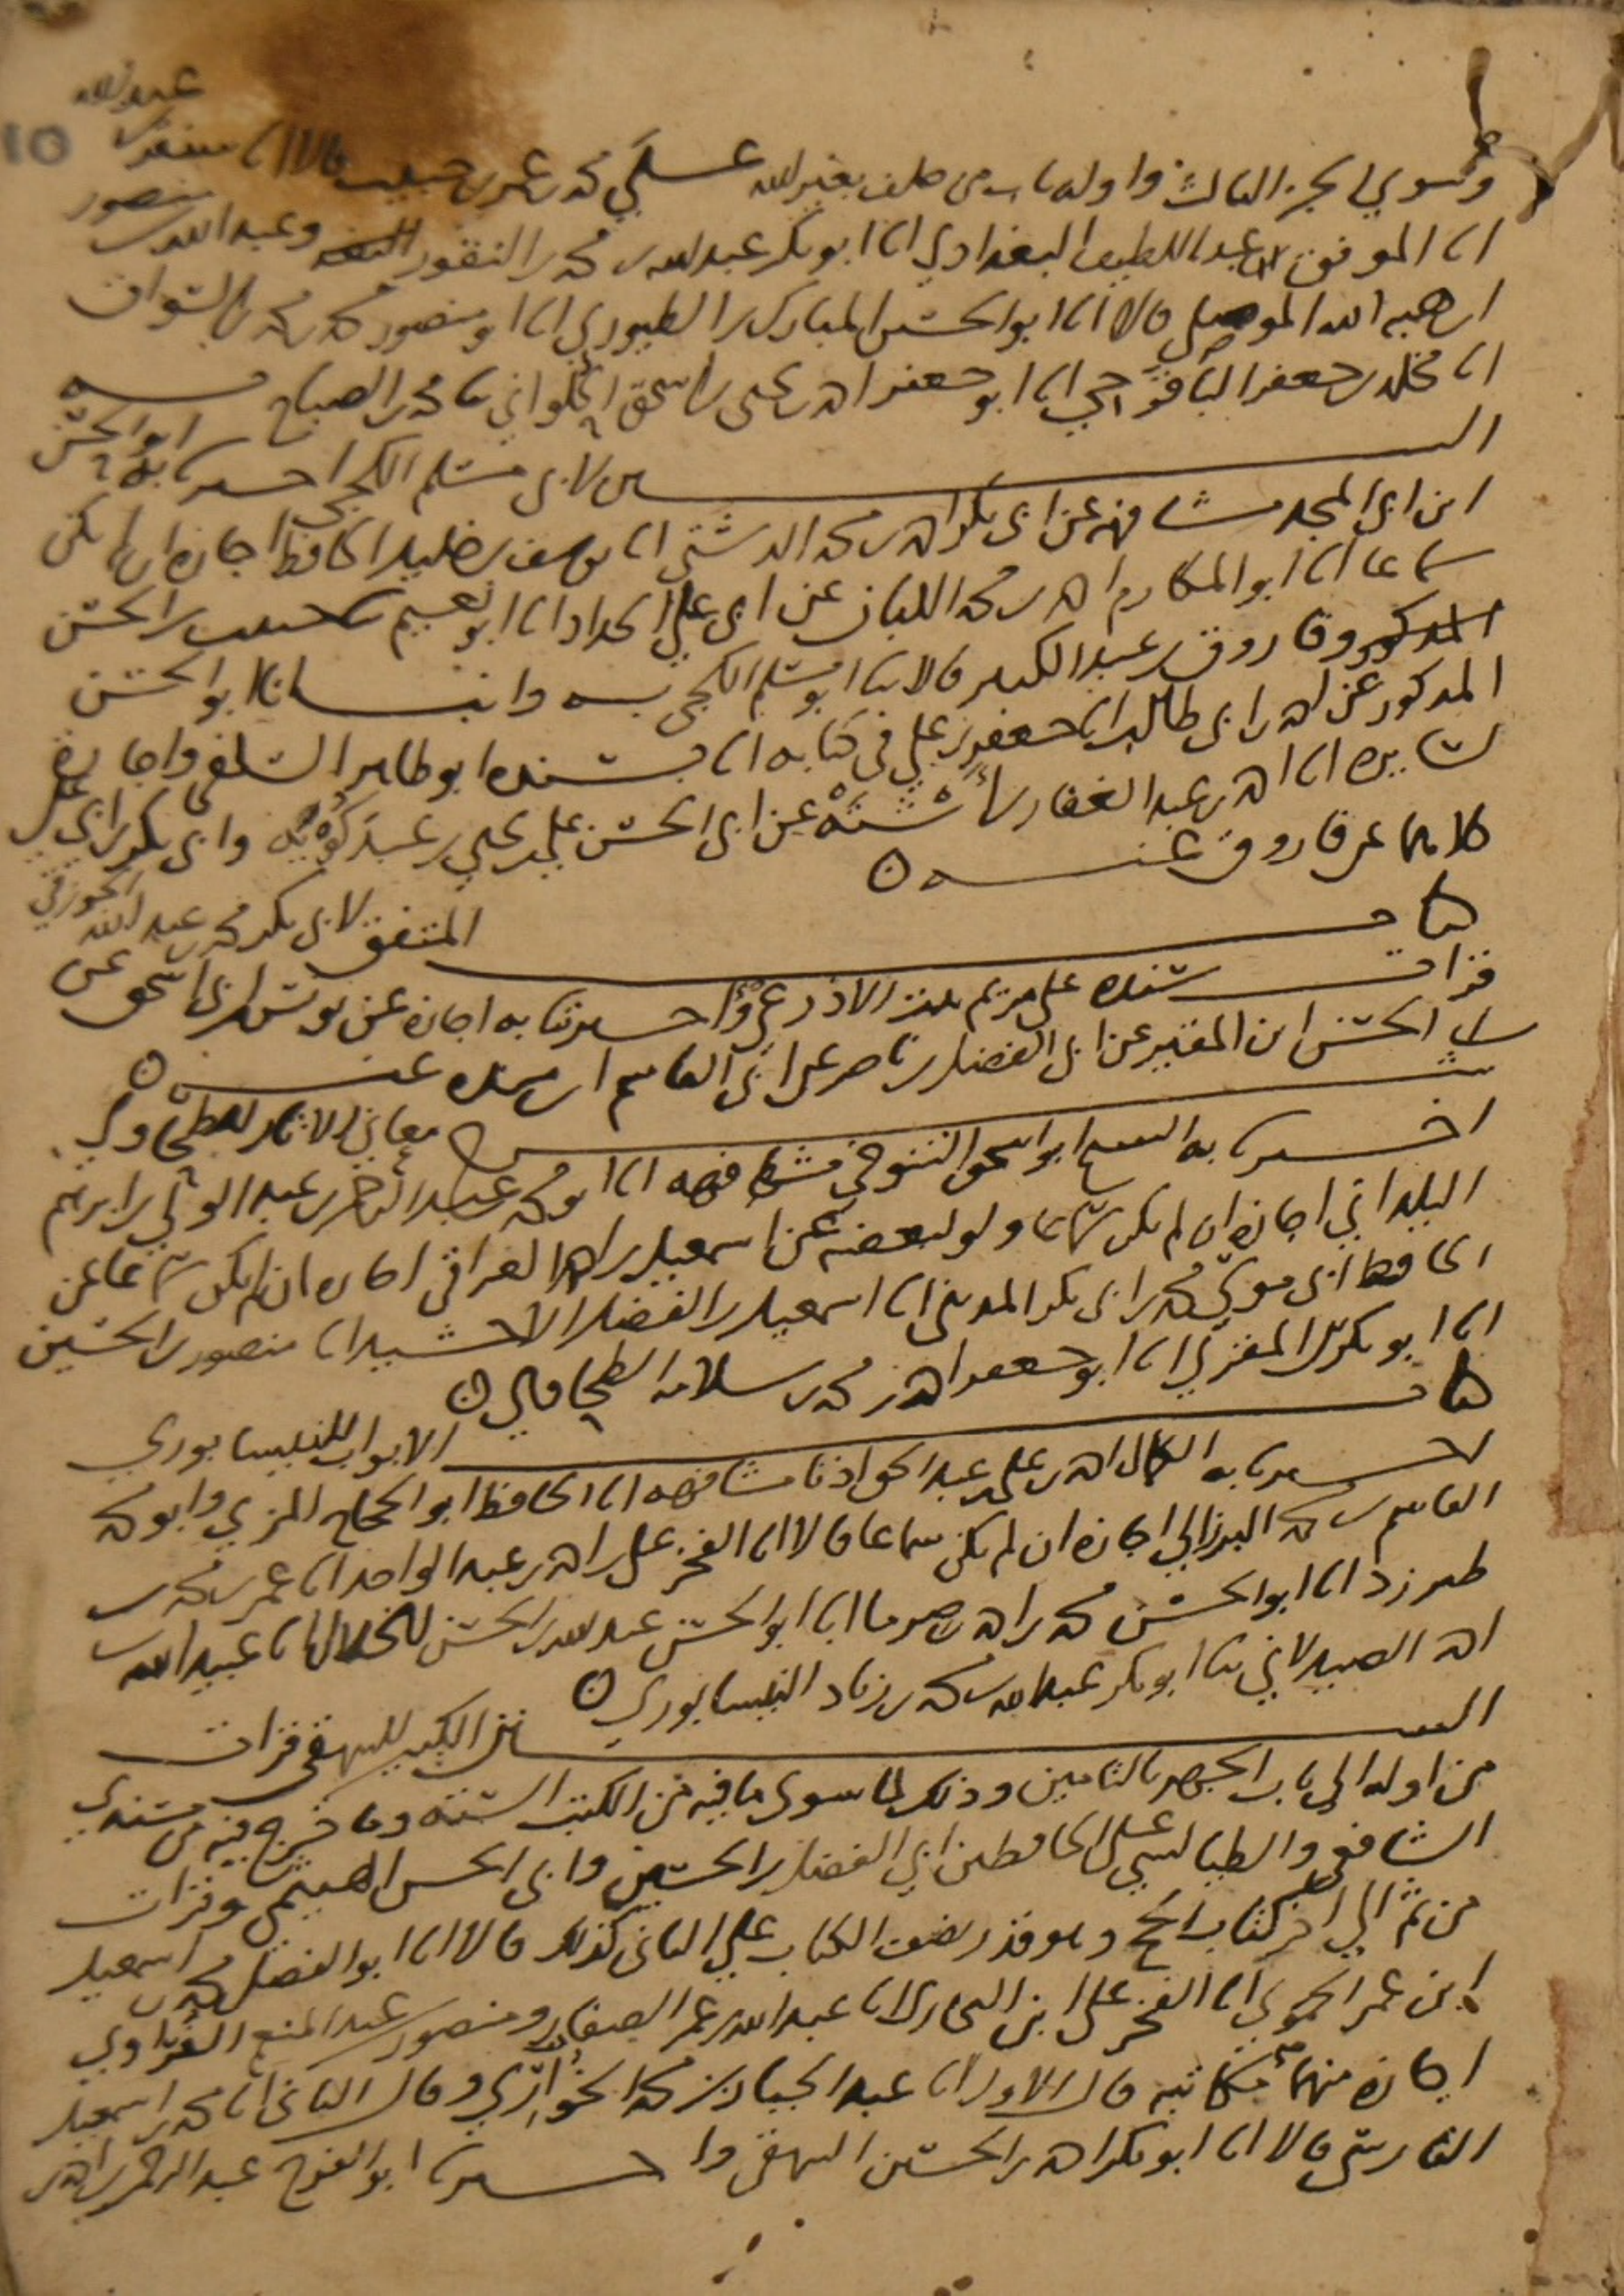 وسوى الجزء الثالث واوله باب من حلف بغير الله على محمد بن عمر بن حبيب قالا انا سنقر بن عبد الله
انا الموفق عبد اللطيف البغدادي انا ابو بكر عبد الله بن محمد بن النقور وعبد الله بن منصور
ابن هبه الله الموصلي قالا انا ابو الحسين المبارك بن الطيوري انا ابو منصور محمد بن محمد بن السواق
انا مخلد بن جعفر الباقرحي انا ابو جعفر احمد بن يحيى بن اسحق الحلواني نا محمد بن الصباح به
السنن لابي مسلم الكجي اخبرنا به ابو الحسن
ابن ابي المجد مشافهة عن ابي بكر احمد بن محمد الدشتي انا يوسف بن خليل الحافظ اجازه ان لم يكن
سماعا انا ابو المكارم احمد بن محمد اللبان عن ابي علي الحداد انا ابو نعيم نا حبيب بن الحسن
المذكور وفاروق بن عبد الكبير قالا ثنا ابو مسلم الكجي به وانبانا ابو الحسن
المذكور عن احمد بن ابي طالب انا جعفر بن علي في كتابه انا بسنده ابو طاهر السلفي واجازة
لسايره انا احمد بن عبد الغفار بن أشتة عن ابي الحسن علي بن يحيى بن عبدكويه وابي بكر بن ابي علي
كلاهما عن فاروق عنه ٥
كتاب المتفق لابي بكر محمد بن عبد الله الجوزقي
قرات سنده على مريم بنت الاذرعي واخبرتنا به اجازه عن يونس بن ابي اسحق عن
ابي الحسن ابن المقير عن ابي الفضل بن ناصر عن ابي القاسم ابن منده عنه ٥
شرح معاني الاثار للطحاوي
اخبرنا به الشيخ ابو اسحق التنوخي مشافهه انا ابو محمد عبد الرحمن بن عبد الولي بن ابرهيم
البلداني اجازه ان لم يكن سماعا ولو لبعضه عن اسمعيل بن احمد العراقي اجازه ان لم يكن سماعا عن
الحافظ ابي موسى محمد بن ابي بكر المديني انا اسمعيل بن الفضل الاخشيد انا منصور بن الحسين
انا ابو بكر بن المقري انا ابو جعفر احمد بن محمد بن سلامه الطحاوي ٥
كتاب الابواب للنيسابوري
اخبرنا به الكمال احمد بن علي بن عبد الحق اذنا مشافهه انا الحافظ ابو الحجاج المزي وابو محمد
القاسم بن محمد البرزالي اجازه ان لم يكن سماعا قالا انا الفخر علي بن احمد بن عبد الواحد انا عمر بن محمد بن
طبرزد انا ابو الحسن محمد بن احمد بن صرما انا ابو الحسن عبد الله بن الحسن الخلال انا عبيد الله بن
احمد الصيدلاني ثنا ابو بكر عبد الله بن محمد بن زياد النيسابوري ٥
السنن الكبير للبيهقي قرات
من اوله الى باب الجهر بالتامين وذلك لما سوى ما فيه من الكتب الستة وما خرج فيه من مسندي
الشافعي والطيالسي على الحافظين ابي الفضل بن الحسين وابي الحسن الهيثمي وقرات
من ثم الى اخر كتاب الحج وهو قدر نصف الكتاب على الثاني كذلك قالا انا ابو الفضل محمد بن اسمعيل
ابن عمر الحموي انا الفخر علي ابن البخاري انا عبد الله بن عمر الصفار ومنصور بن عبد المنعم الفراوي
اجازه منهما مكاتبه قال الاول انا عبد الجبار بن محمد الخواري وقال الثاني انا محمد بن اسمعيل
الفارسي قالا انا ابو بكر احمد بن الحسين البيهقي واخبرنا ابو الفرج عبد الرحمن بن احمد بن